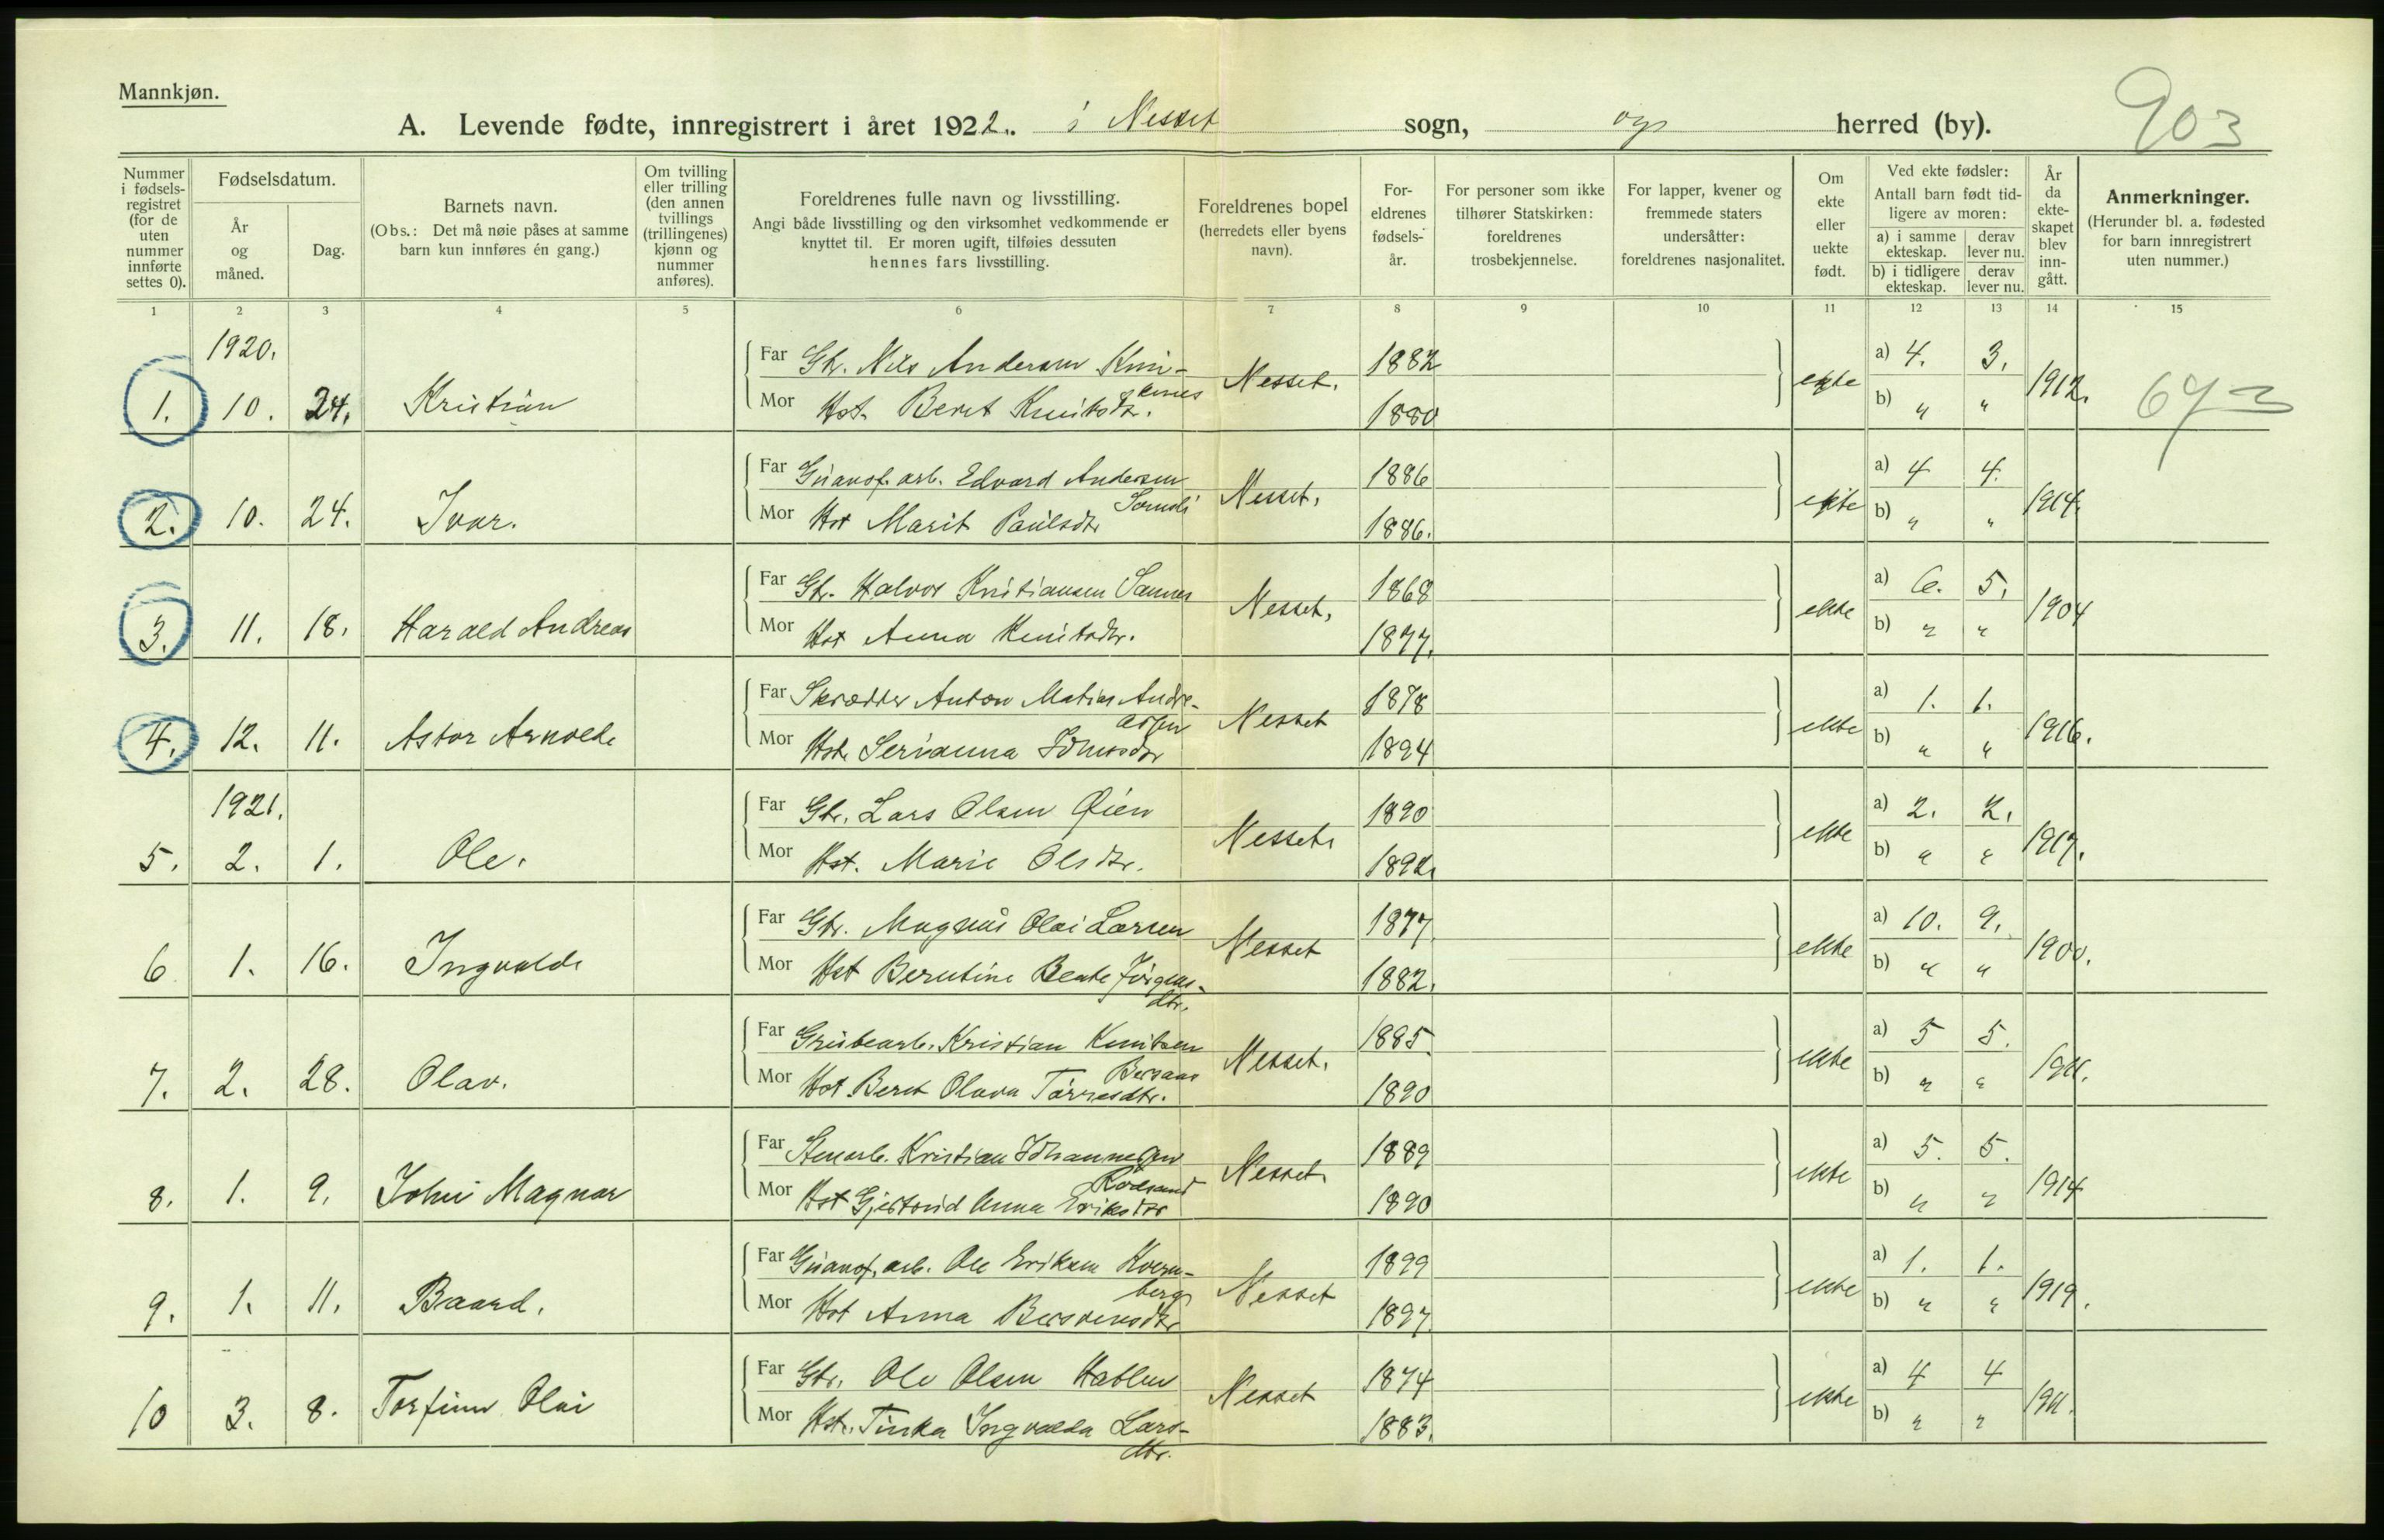 Mannkjøn.
A. Levende fødte, innregistrert i året 1922. i Nesset sogn, og herred (by).
903
Nummer i fødsels-registret (for de uten nummer innførte settes 0).
Fødselsdatum.
År og måned.
Dag.
Barnets navn.
(Obs.: Det må nøie påses at samme barn kun innføres én gang.)
Om tvilling eller trilling (den annen tvillings (trillingenes) kjønn og nummer anføres).
Foreldrenes fulle navn og livsstilling.
Angi både livsstilling og den virksomhet vedkommende er knyttet til. Er moren ugift, tilføies dessuten hennes fars livsstilling.
Foreldrenes bopel (herredets eller byens navn).
For-eldrenes fødsels-år.
For personer som ikke tilhører Statskirken: foreldrenes trosbekjennelse.
For lapper, kvener og fremmede staters undersåtter: foreldrenes nasjonalitet.
Om ekte eller uekte født.
Ved ekte fødsler: Antall barn født tid-ligere av moren:
a) i samme ekteskap.
derav lever nu.
b) i tidligere ekteskap.
derav lever nu.
År da ekte-skapet blev inn-gått.
Anmerkninger.
(Herunder bl. a. fødested for barn innregistrert uten nummer.)
1 2 3 4 5 6 7 8 9 10 11 12 13 14 15
1920.
1. 10. 24. Kristian
Far Gbr. Nils Andersen
Mor Hst. Beret Knutsdtr.
Nesset. 1882 1880 ekte a) 4. 3. b) " " 1912.
673
2. 10. 24. Ivar.
Far Guanof. arb. Edvard Andersen
Mor Hst Marit Paulsdtr
Nesset. 1886 1886. ekte a) 4 4. b) " " 1914.
3. 11. 18. Harald Andreas
Far Gbr. Halvor Kristiansen Sannes
Mor Hst Anna Knutsdtr.
Nesset. 1868 1877. ekte a) 6. 5. b) " " 1904
4. 12. 11. Astor Arnolde
Far Skrædder Anton Matias Andre-
assen
Mor Hst. Serianna
Nesset 1878 1894 ekte a) 1. 1. b) " " 1916.
1921.
5. 2. 1. Ole.
Far Gbr. Lars Olsen Øien
Mor Hst. Marie Olsdtr.
Nesset. ekte 1890 a) 2. 2. b) " " 1917.
6 1. 16. Ingvalde
Far Gbr. Magnus Olai Larsen
Mor Hst Berntine Beate Jørgens-
dtr.
Nesset 1877. 1882. ekte a) 10. 9. b) " " 1900.
7. 2. 28. Olav.
Far Grubearb. Kristian Knutsen
Mor Hst Beret Olava Torresdtr.
Nesset. 1885. 1890 ekte a) 5 5. b) " " 1911.
8. 1. 9. John Magnar
Far Stenarb. Kristian Johannessen
Rødsand
Mor Hst Gjertrud Anna Eriksdtr
Nesset. 1889 1890 ekte a) 5. 5. b) " " 1914
9. 1. 11. Baard.
Far Guanof. arb. Ole Eriksen Kvern-
berg
Mor Hst Anna
Nesset 1899 1897. ekte a) 1. 1. b) " " 1919.
10 3. 8. Torfinn Olai
Far Gbr. Ole Olsen
Mor Hst. Tinka Ingvalda Lars-
dtr.
Nesset 1874 1883. ekte a) 4 4 b) " " 1911.